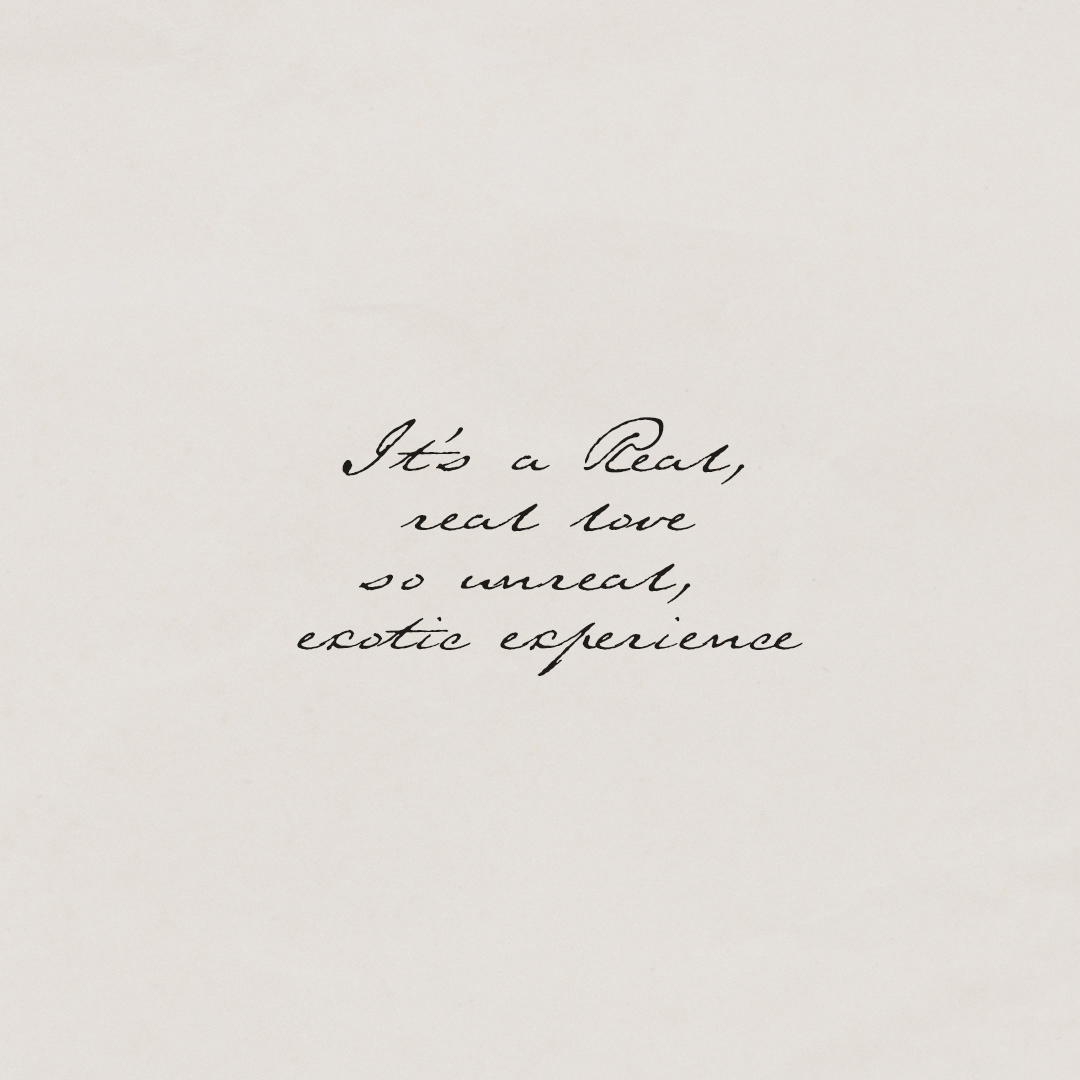 It's a Real,
real love
so unreal,
exotic experience